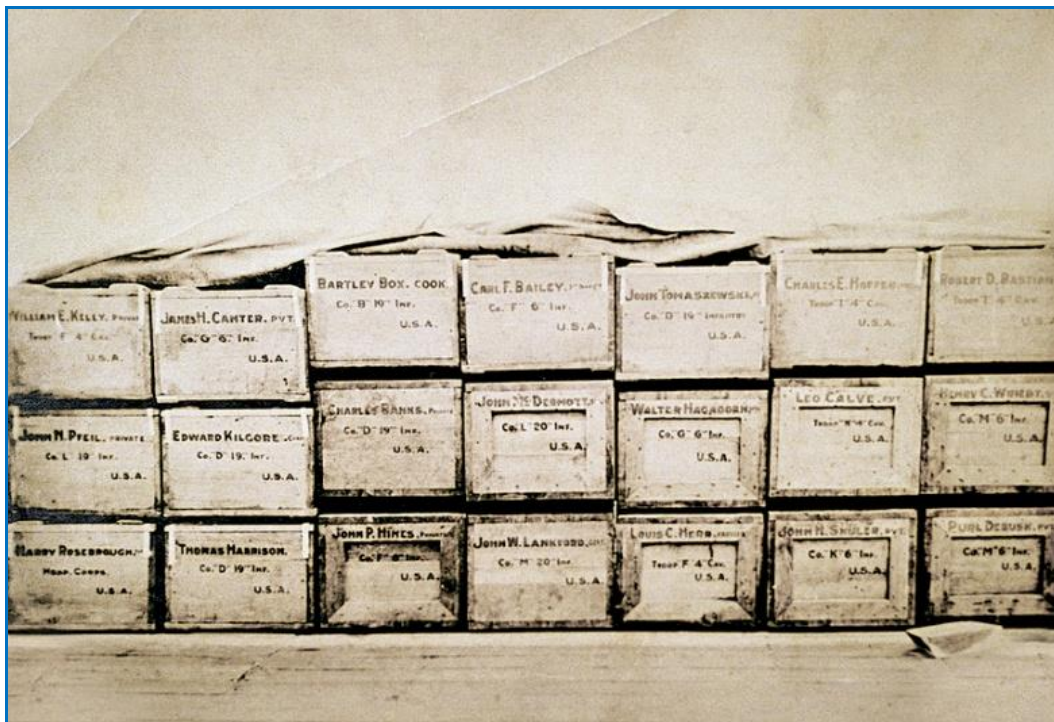 WILLIAM E. KELLY, PRIVATE
TROOP "F" 4" CAV.
U.S.A.
JAMES H. CANTER, PVT.
Co. "G" 6" INF.
U.S.A.
BARTLEY BOX, COOK
Co. "B" 19" INF.
U.S.A.
CARL F. BAILEY,
Co. "F" 6" INF.
U.S.A.
JOHN TOMASZEWSKI,
Co. "D" 19" INFANTRY
U.S.A.
CHARLES E. HOFFER,
TROOP "I" 4" CAV.
U.S.A.
ROBERT D. BASTIAN
TROOP "I" 4" CAV.
U.S.A.
JOHN N. PFEIL, PRIVATE
Co. "L" 19" INF.
U.S.A.
EDWARD KILGORE,
Co. "D" 19. INF.
U.S.A.
CHARLES BANKS,
Co. "D" 19" INF.
U.S.A.
JOHN McDERMOTT,
Co. "L" 20" INF.
U.S.A.
WALTER HAGHOORN,
Co. "G" 6" INF.
U.S.A.
LEO CALVE, PVT.
TROOP 4" CAV.
U.S.A.
HENRY C.
Co. "M" 6" INF.
U.S.A.
HARRY ROSEBROUGH,
HOSP. CORPS.
U.S.A.
THOMAS HARRISON.
Co. "D" 19" INF.
U.S.A.
JOHN P. HINES, PRIVATE
Co. "F" INF.
U.S.A.
JOHN W. LANKFORD,
Co. "M" 20" INF.
U.S.A.
LOUIS C. HERB,
TROOP "F" 4" CAV.
U.S.A.
JOHN N. SHULER, PVT.
Co. "K" 6" INF.
U.S.A.
PURL DEBUSK, PVT.
Co. "M" 6" INF.
U.S.A.